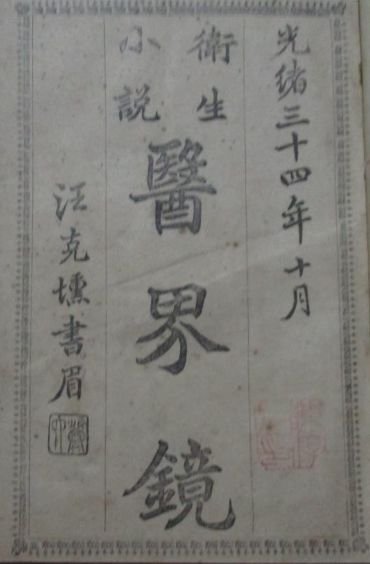 光緒三十四年十月
衛生
小説
醫界鏡
汪克壎書眉